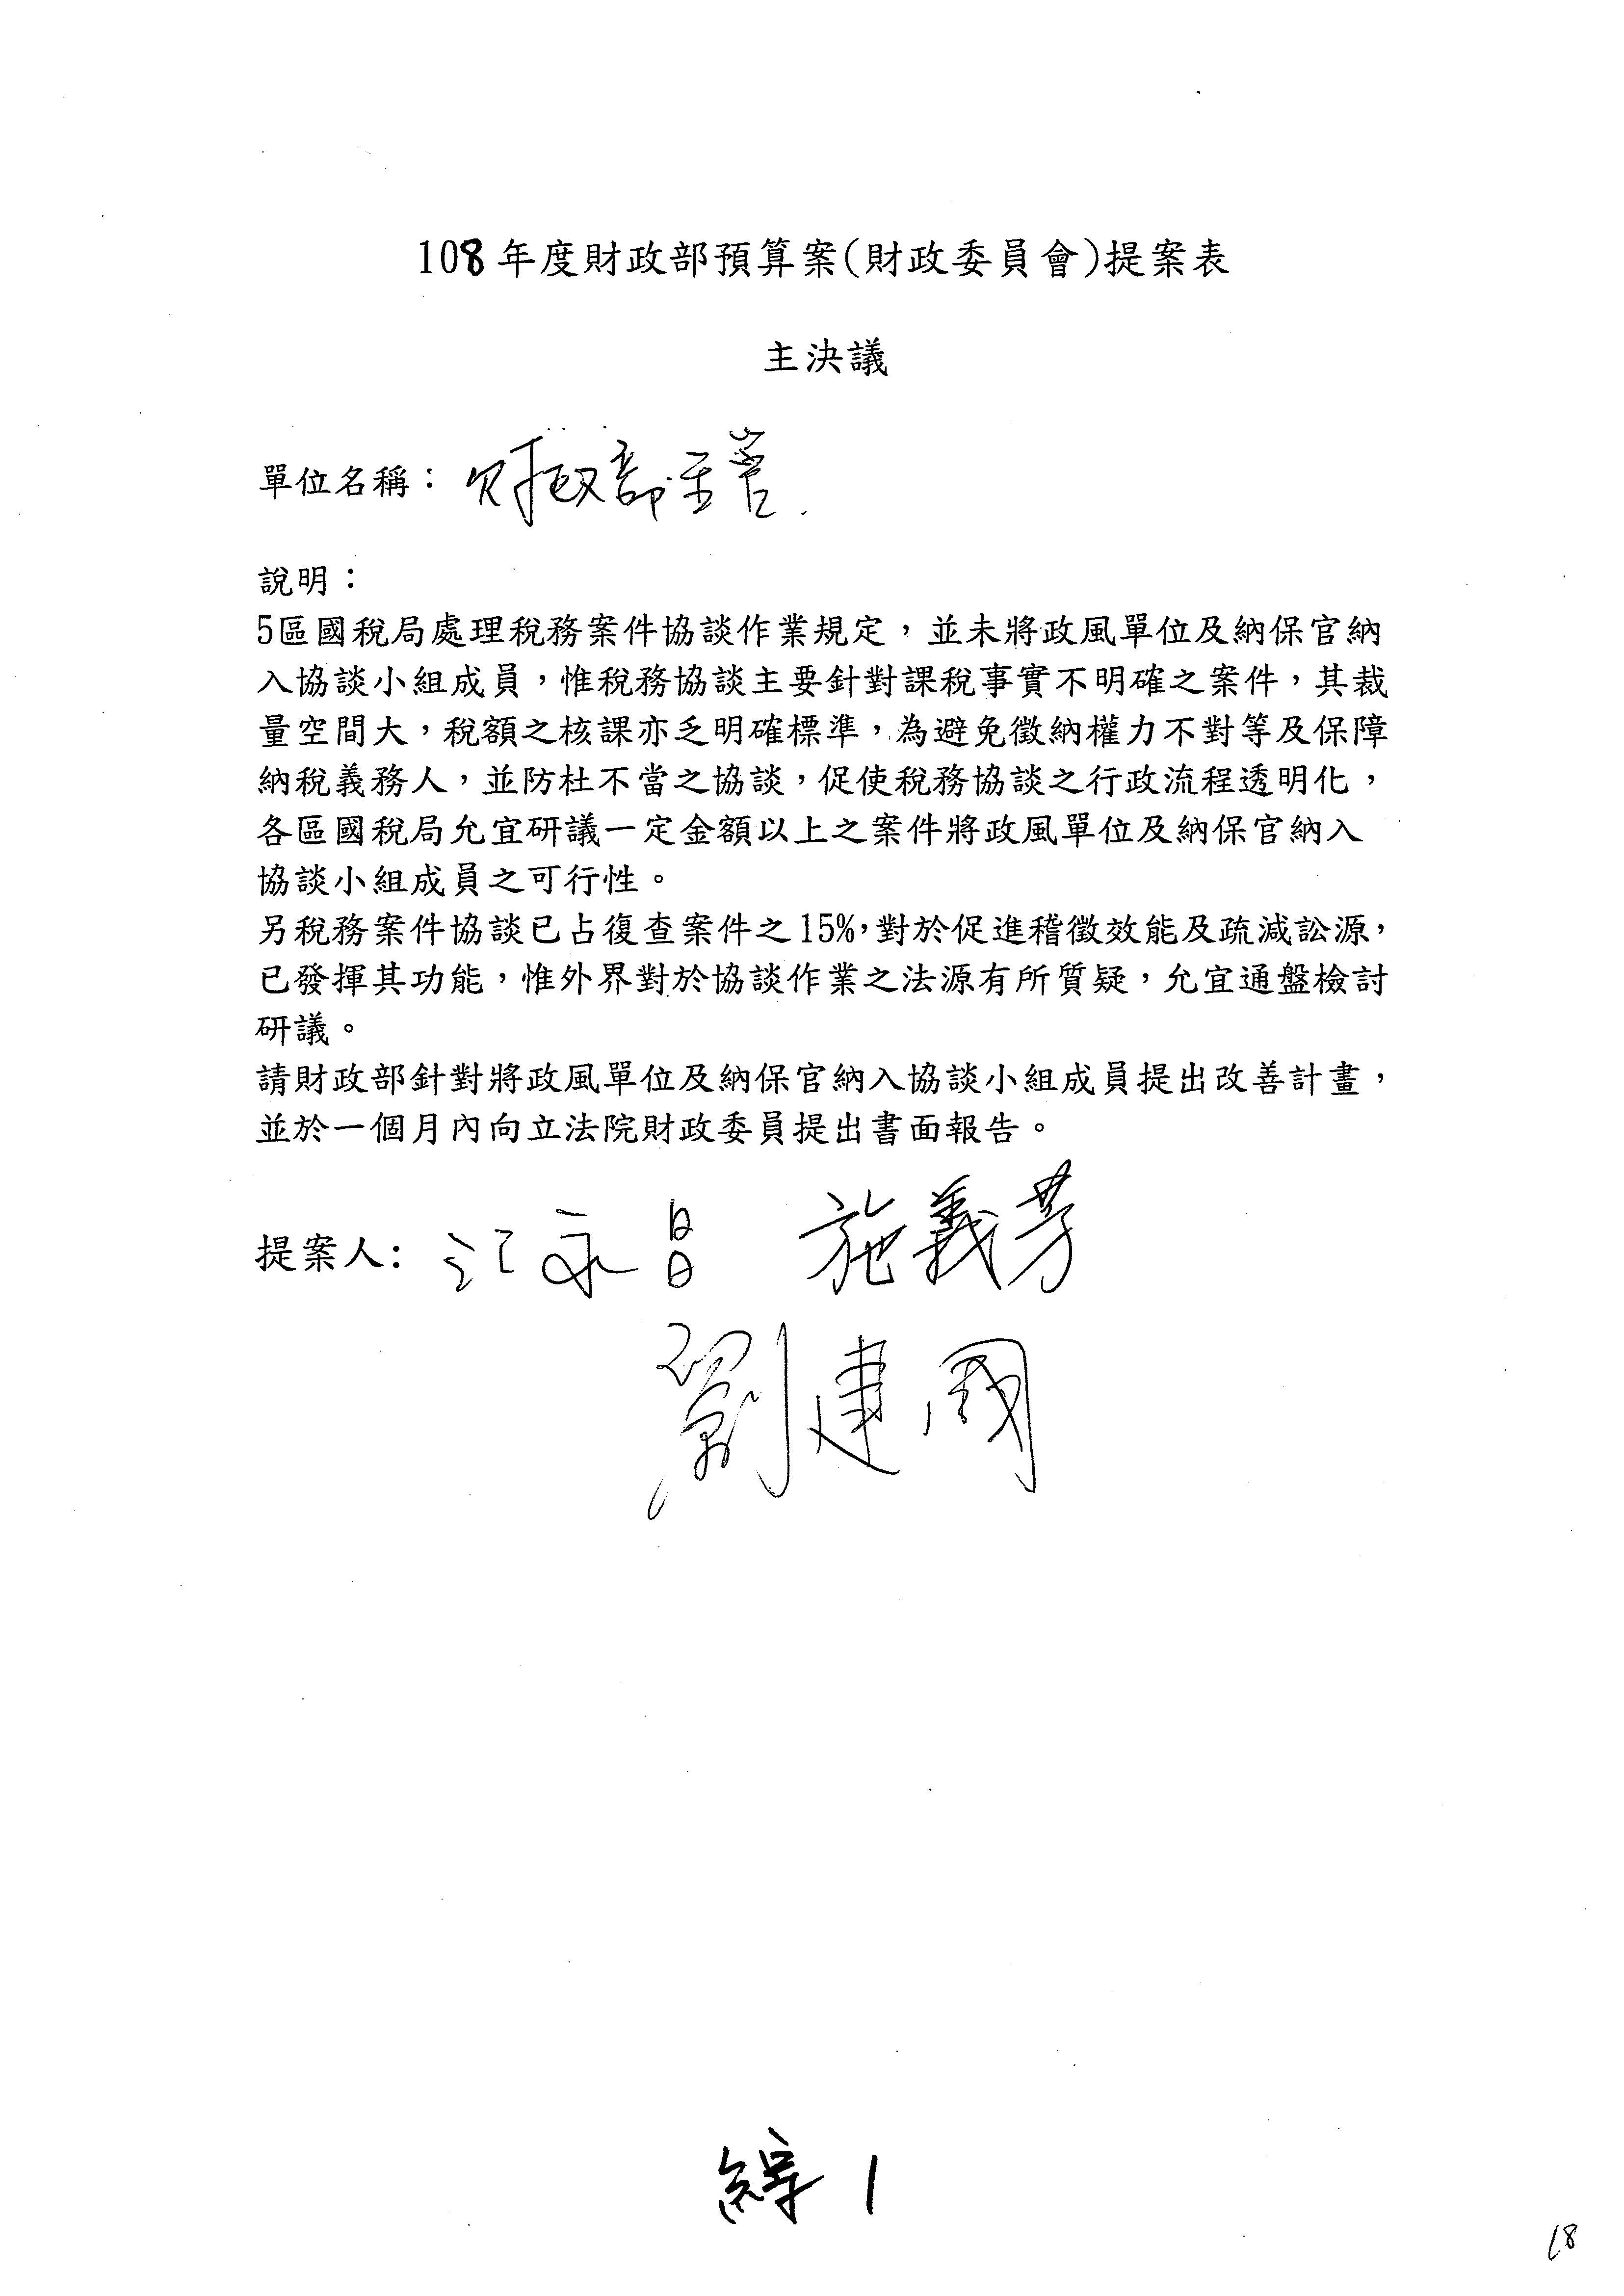 108年度財政部預算案(財政委員會)提案表
主決議
單位名稱：財政部主管.
說明：
5區國稅局處理稅務案件協談作業規定，並未將政風單位及納保官納
入協談小組成員，惟稅務協談主要針對課稅事實不明確之案件，其裁
量空間大，稅額之核課亦乏明確標準，為避免徵納權力不對等及保障
納稅義務人，並防杜不當之協談，促使稅務協談之行政流程透明化，
各區國稅局允宜研議一定金額以上之案件將政風單位及納保官納入
協談小組成員之可行性。
另稅務案件協談已占復查案件之15%，對於促進稽徵效能及疏減訟源，
已發揮其功能，惟外界對於協談作業之法源有所質疑，允宜通盤檢討
研議。
請財政部針對將政風單位及納保官納入協談小組成員提出改善計畫，
並於一個月內向立法院財政委員提出書面報告。
提案人：江永昌 施義芳
劉建國
1
18